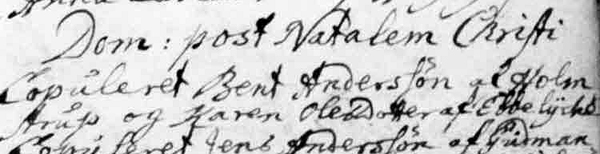 Dom: post Natalem Christi
Copuleret Bent Andersøn af Holm
strup og Karen Olesdotter af Ebbelyche
Copuleret Jens Andersøn af Gudman